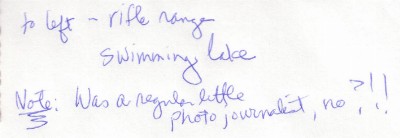 to left - rifle range
swimming lake
Note: Was a regular little
photojournalist, no?!!